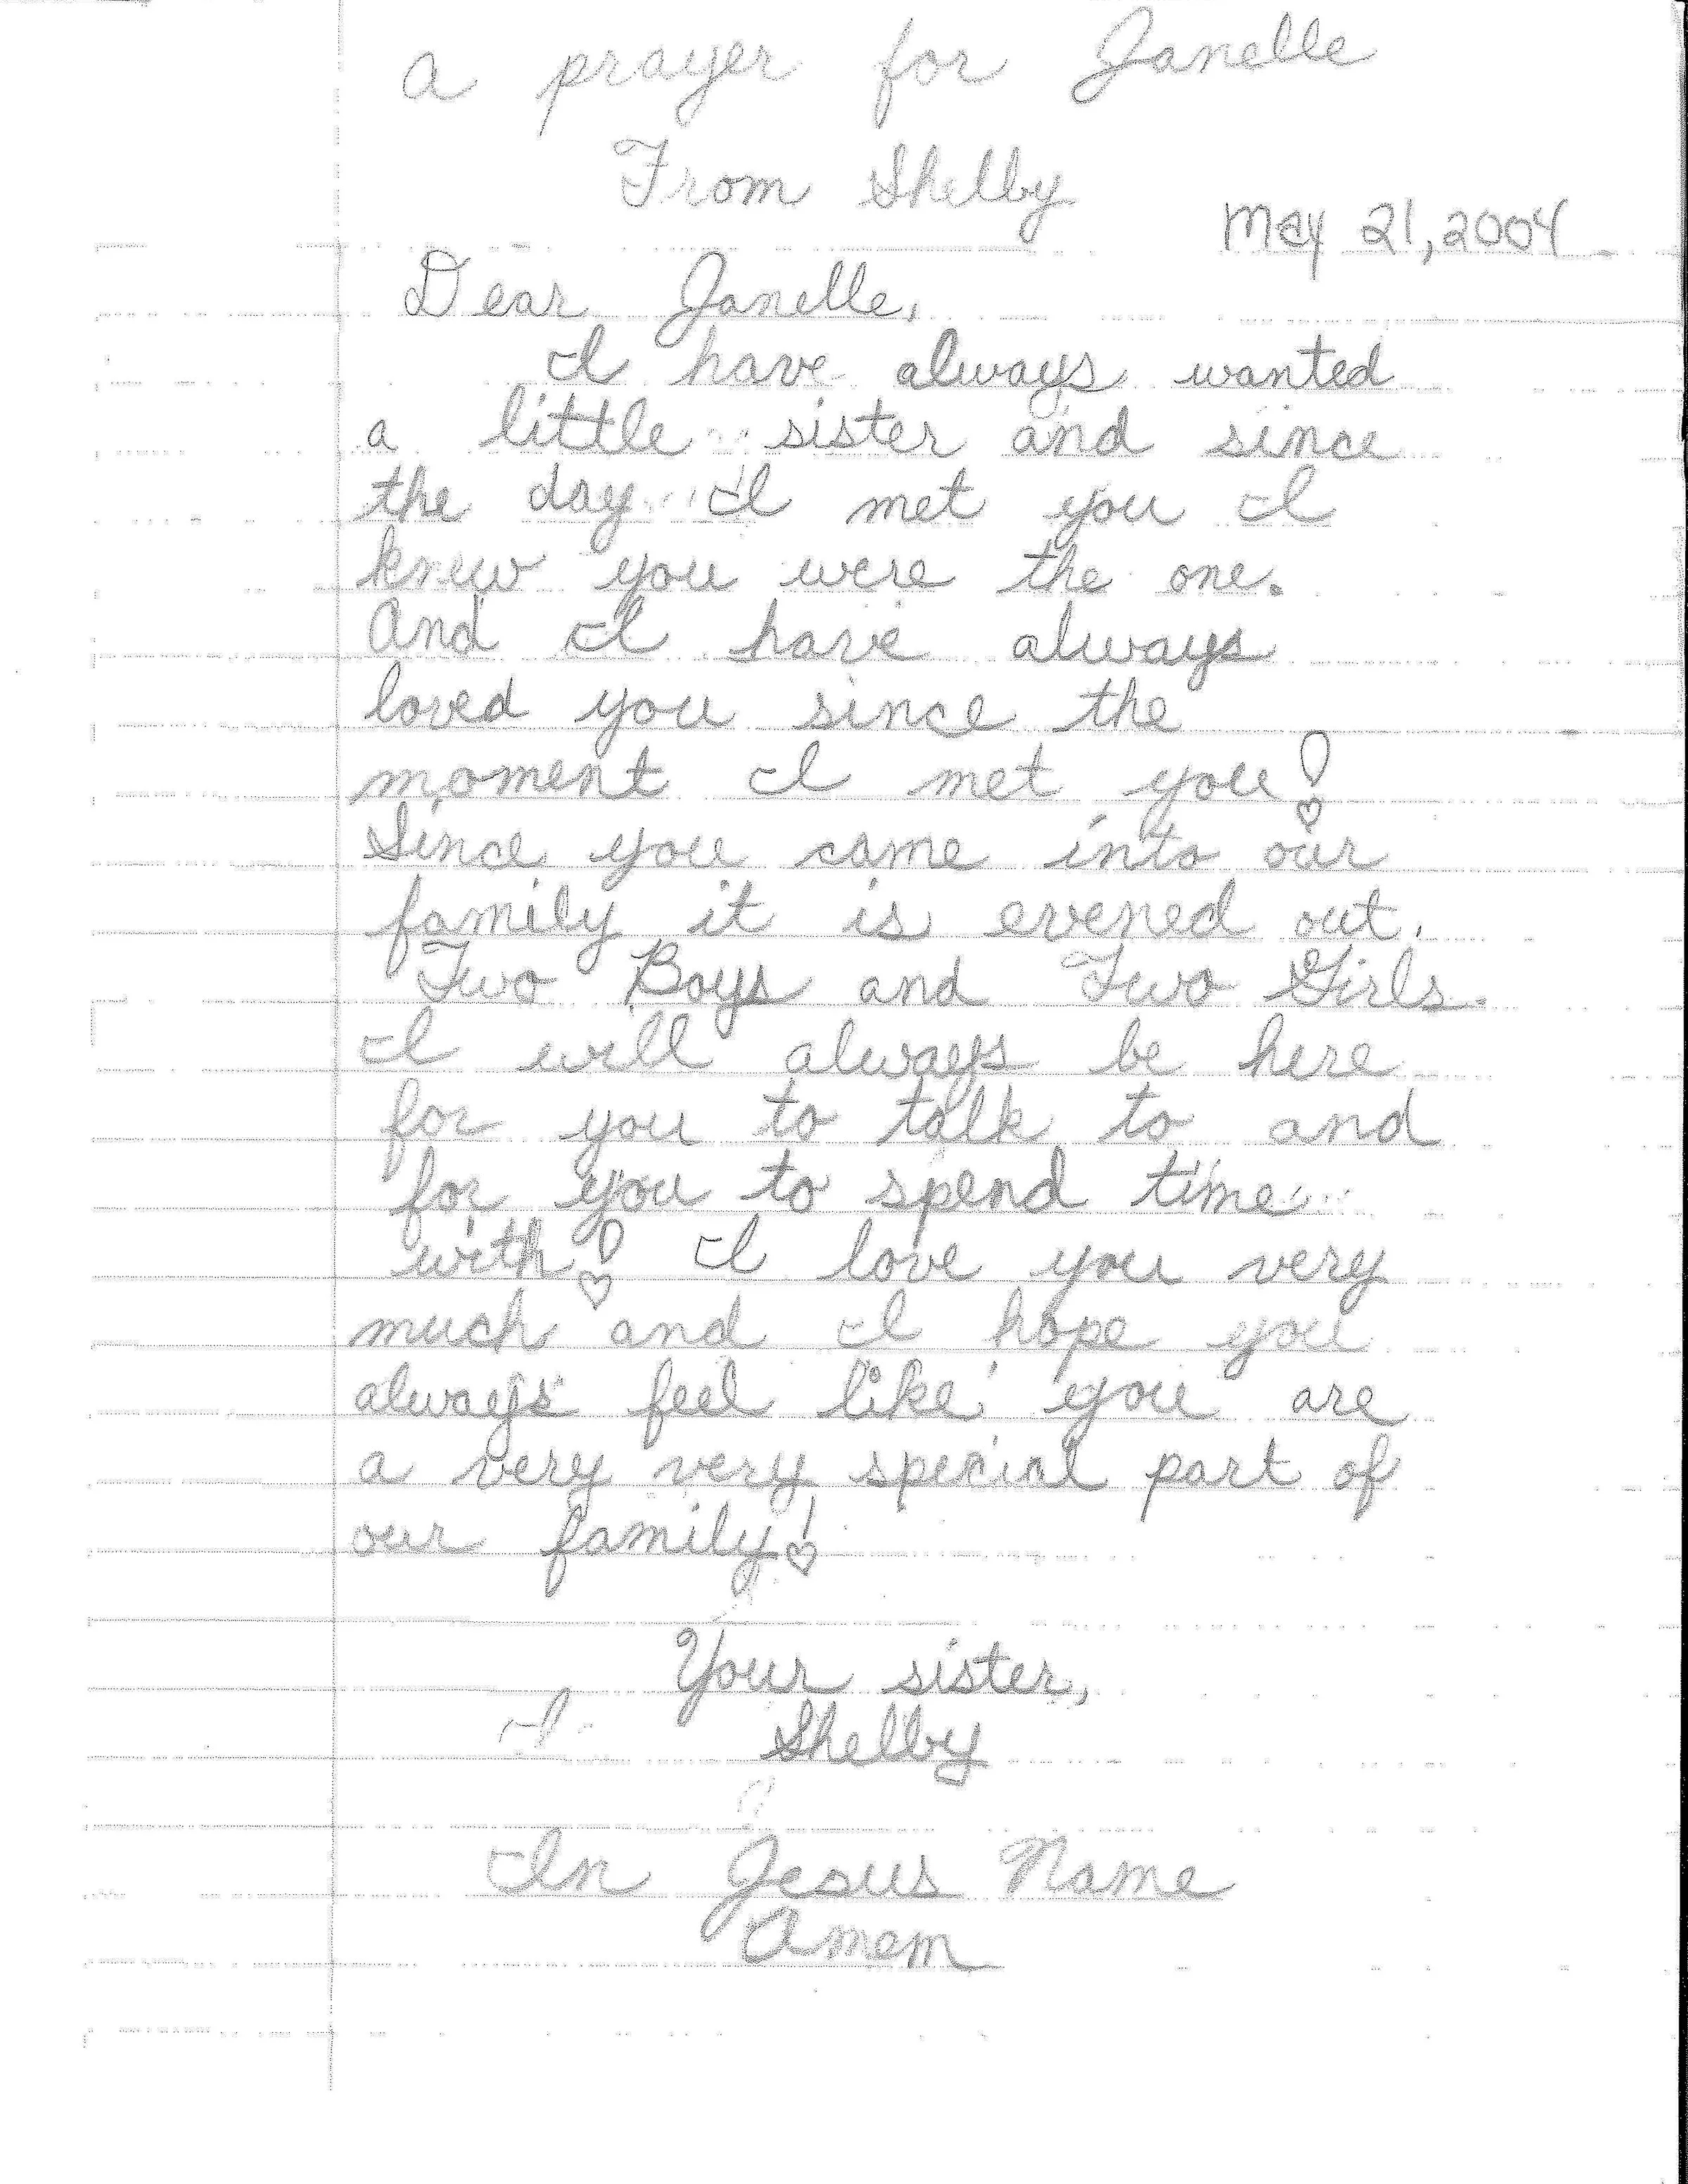 a prayer for Janelle
From Shelby
May 21, 2004
Dear Janelle,
I have always wanted
a little sister and since
the day I met you I
knew you were the one.
And I have always
loved you since the
moment I met you!
Since you came into our
family it is evened out.
Two Boys and Two Girls.
I will always be here
for you to talk to and
for you to spend time
with! I love you very
much and I hope you
always feel like you are
a very very special part of
our family!
Your sister,
Shelby
In Jesus Name
Amem